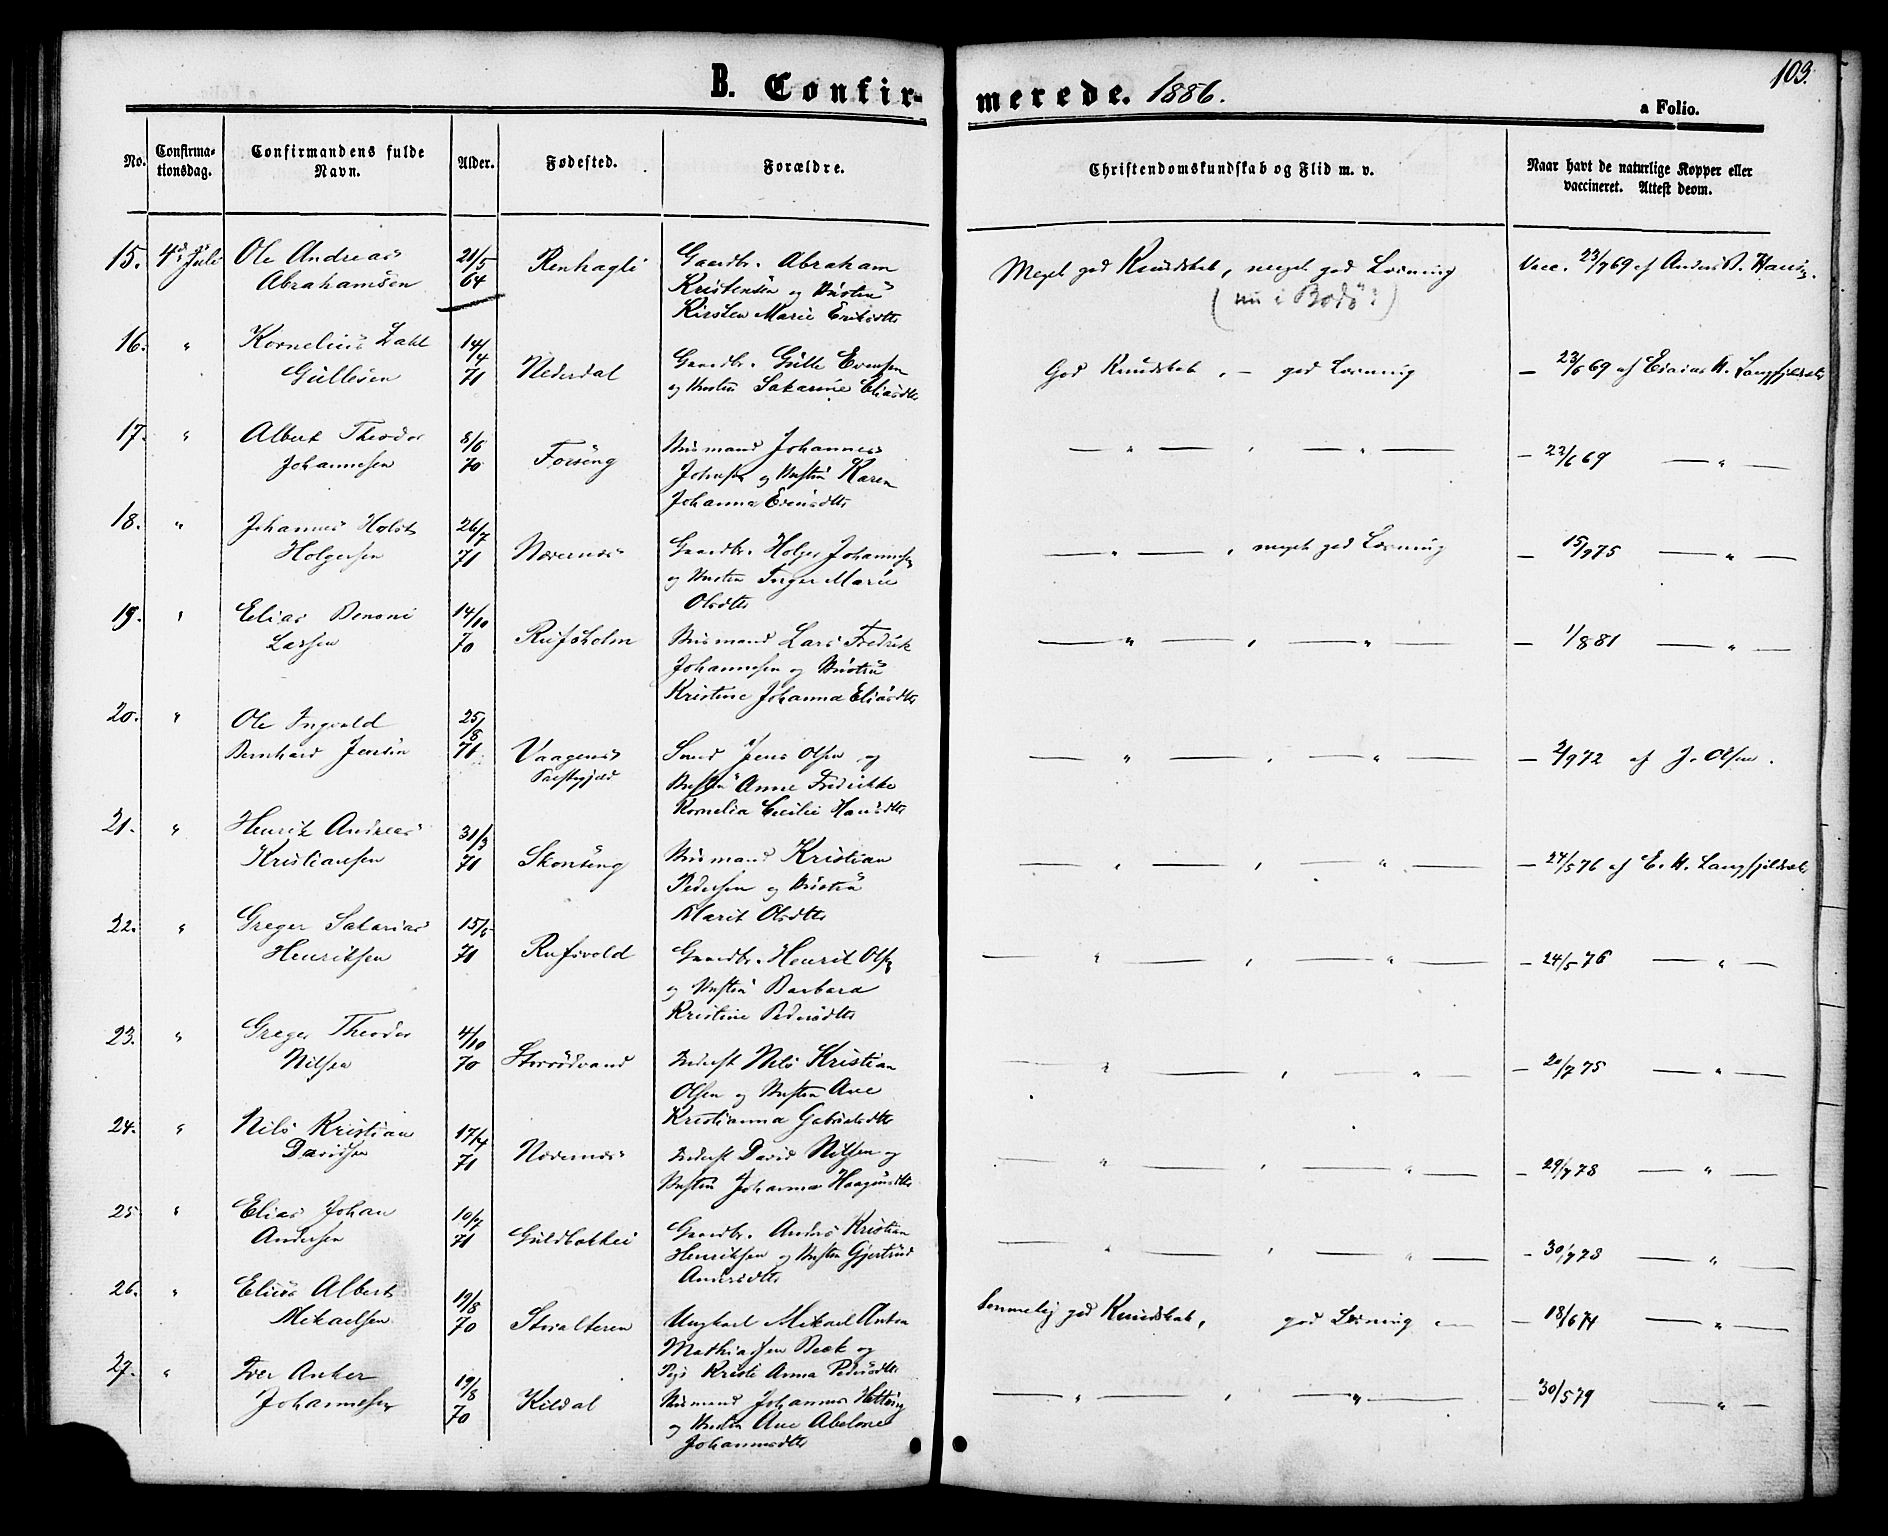 B. Confir-
merede. 1886.
103.
a Folio.
No.
Confirma-
tionsdag.
Confirmandens fulde
Navn.
Alder.
Fødested.
Forældre.
Christendomskundskab og Flid m. v.
Naar havt de naturlige Kopper eller
vaccineret. Attest deom.
15. 4de Juli Ole Andreas 21/5 Renhagli Gaardbr. Abraham Meget god Kundskab, meget god Læsning Vacc. 23/7 69 af Anders
Abrahamsen 64 Kristensen og Hustru (nu i Bodø?)
Kirsten Marie Eriksdtr
16. " Kornelius Zahl 14/4 Nederdal Gaardbr. Gulle Evensen God Kundskab, — god Læsning — 23/6 69 af Esaias H. Langfjeldnæs
Gullesen 71 og Hustru Sakarine Eliasdtr
17. " Albert Theodor 8/6 Forseng Husmand Johannes — " — , — " — — 23/6 69 — " —
Johannesen 70 Johnsen og Hustru Karen
Johanna Evensdtr
18. " Johannes Holst 26/7 Nævernæs Gaardbr. Holger Johannesen — " — , meget god Læsning — 15/9 75 — " —
Holgersen 71 og Hustru Inger Marie
Olsdtr
19. " Elias Benoni 14/10 Rufsholm Husmand Lars Fredrik — " — , — " — — 1/8 81 — " —
Larsen 70 Johannesen og Hustru
Kristine Johanna Eliasdtr
20. " Ole Ingvald 25/8 Vaagenes Jens Olsen og — " — , — " — — 2/9 72 af J. Olsen.
Bernhard Jensen 71 Hustru Anne Fredrikke
Kornelia Cecilie Hansdtr
21. " Henrik Andreas 31/3 Skonseng Husmand Kristian — " — , — " — — 24/5 76 af E. H. Langfjeldnæs
Kristiansen 71 Pedersen og Hustru
Marit Olsdtr
22. " Greger Sakarias 15/6 Rufsvold Gaardbr. Henrik Olsen — " — , — " — — 24/5 76 — " —
Henriksen 71 og Hustru Barbara
Kristine Pedersdtr
23. " Greger Theodor 4/10 Inderst Nils Kristian — " — , — " — — 20/7 75 — " —
Nilsen 70 Olsen og Hustru Ane
Kristianna Gabrielsdtr
24. " Nils Kristian 17/4 Nævernæs Inderst David Nilsen og — " — , — " — — 29/7 78 — " —
Davidsen 71 Hustru Johanna Haagensdtr
25 " Elias Johan 10/7 Guldbakkli Gaardbr. Anders Kristian — " — , — " — — 30/7 78 — " —
Andersen 71 Henriksen og Hustru Gjertrud
Andersdtr
26. " Elias Albert 19/8 Storalteren Ungkarl Mikael Anton Temmelig god Kundskab, god Læsning — — 18/6 74 — " —
Mikaelsen 70 Mathiassen Bæk og
Pige Kristi Anna Pedersdtr
27. " Iver Anker 19/8 Kildal Husmand Johannes — " — , — " — — 30/5 79 — " —
Johannesen 70 og Hustru Ane Abelone
Johannesdtr